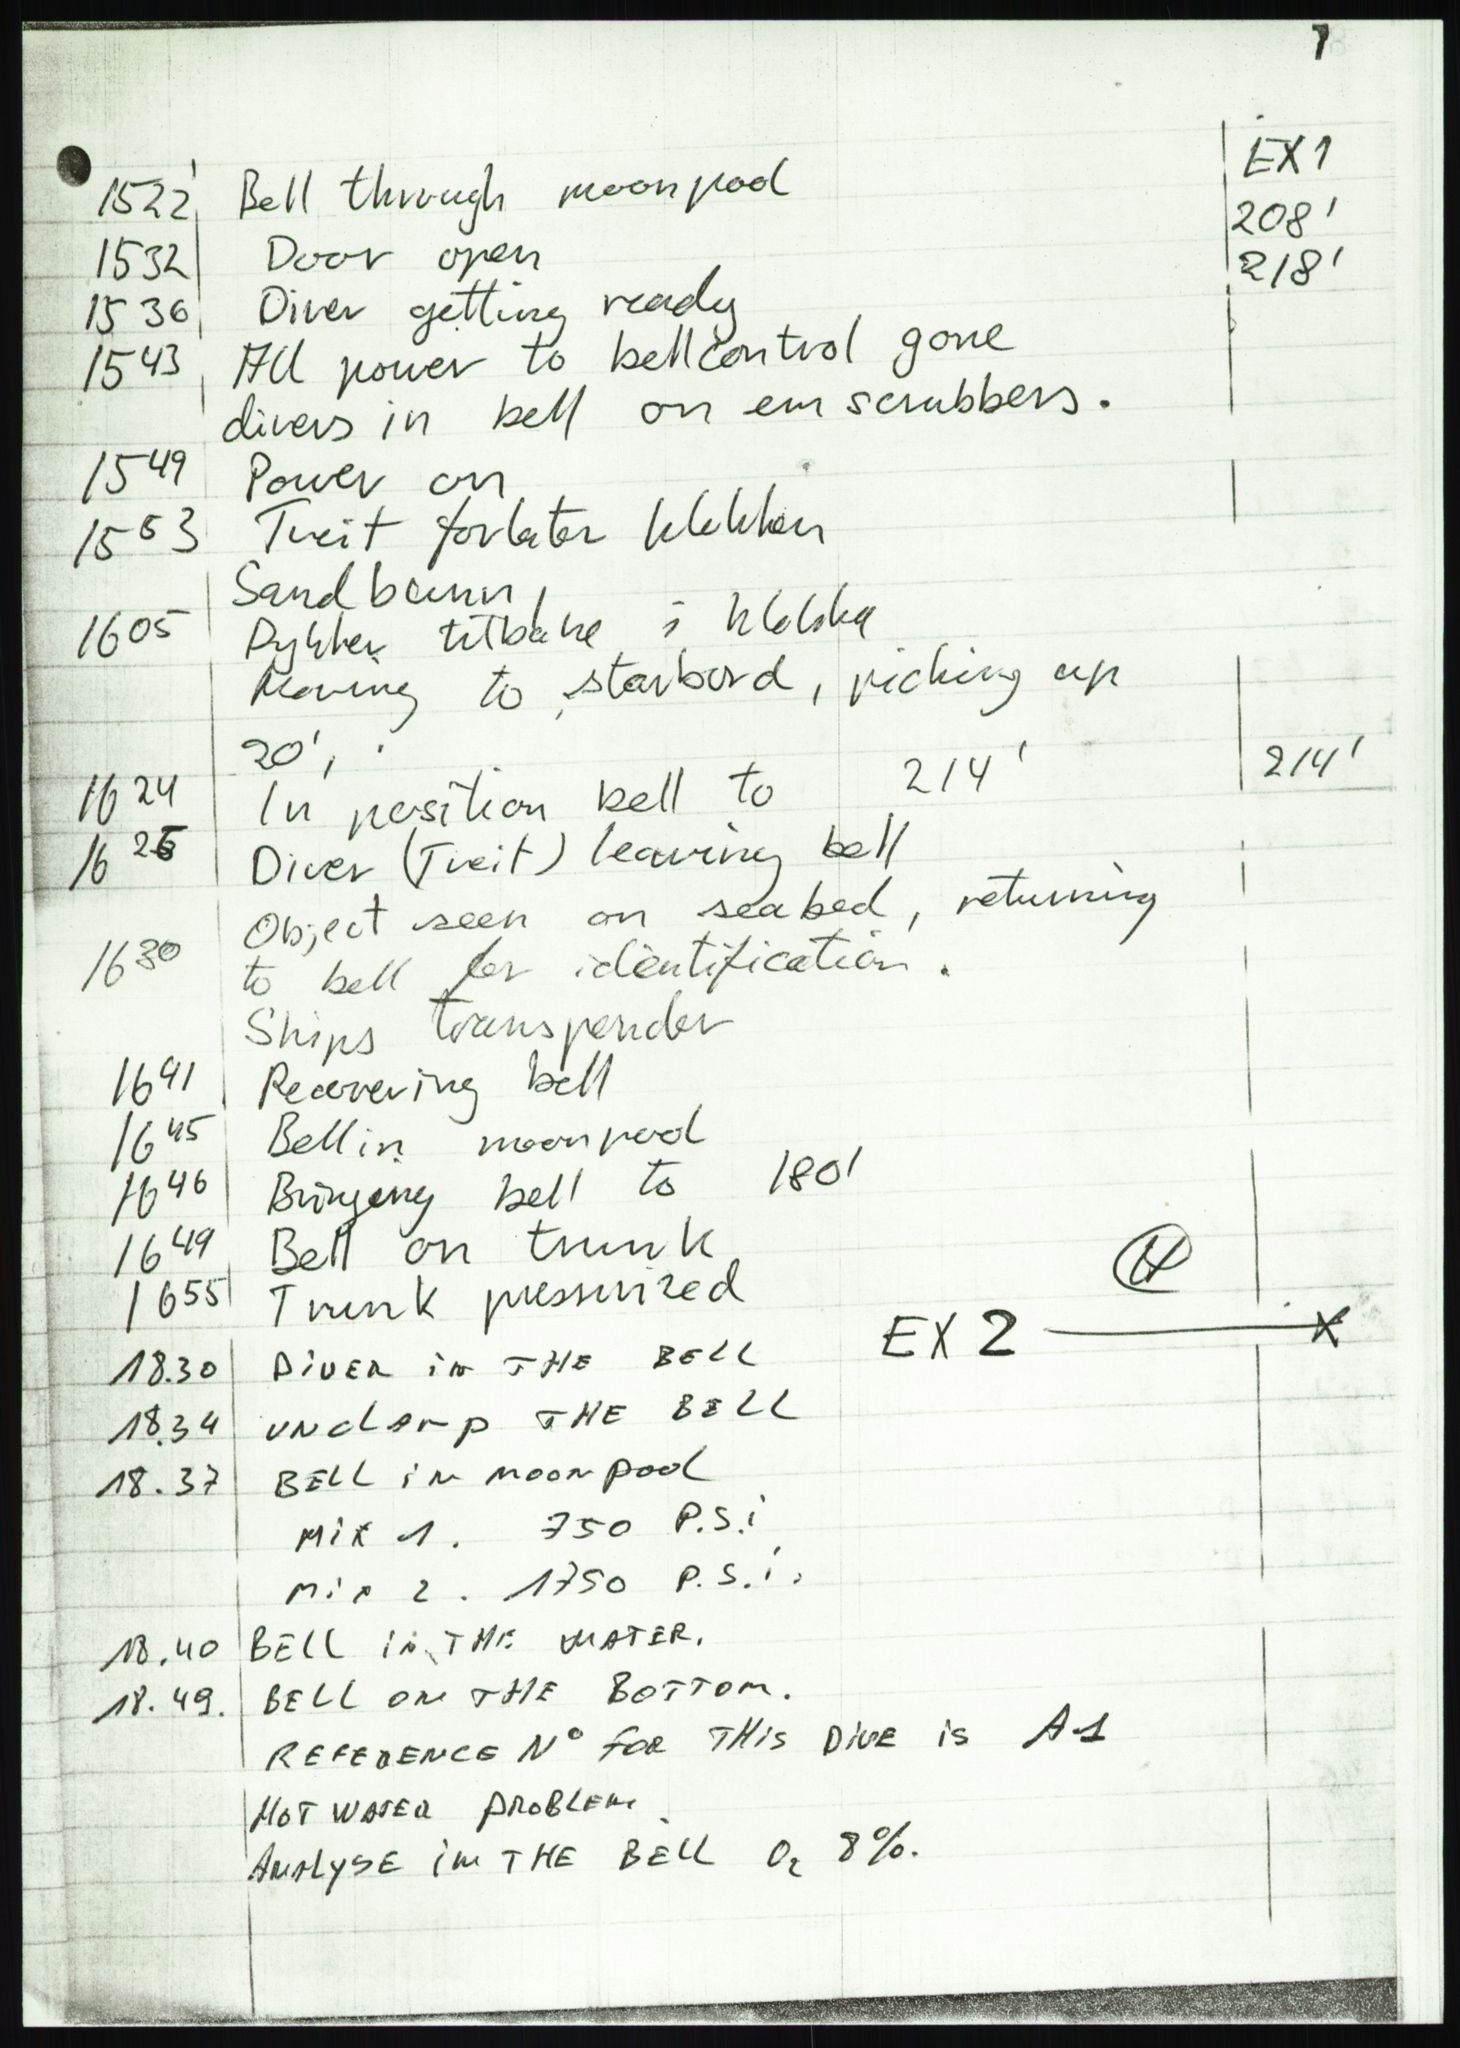 1
EX1
1522 Bell through moonpool 208'
1532 Door open 218'
1536 Diver getting ready
1543 All power to bellcontrol gone
divers in bell on em scrubbers.
1549 Power on
1553 Tveit forlater klokken
Sandbunn,
1605 Dykker tilbake i klokka
Moving to starbord, picking up
20',
1624 In position bell to 214' 214'
1625 Diver (Tveit) leaving bell
Object seen on seabed, returning
1630 to bell for identification.
Ships transponder
1641 Recovering bell
1645 Bell in moonpool
1646 Bringing bell to 180'
1649 Bell on trunk
1655 Trunk pressurized
EX 2 X
18.30 DIVER in THE BELL
18.34 UNCLAMP THE BELL
18.37 BELL in moonpool
Mix 1. 750 P.S.i
Mix 2. 1750 P.S.i.
18.40 BELL in THE WATER.
18.49. BELL ON THE BOTTOM.
REFERENCE N° FOR THIS DIVE is A1
HOT WATER PROBLEM
ANALYSE in THE BELL O2 8%.